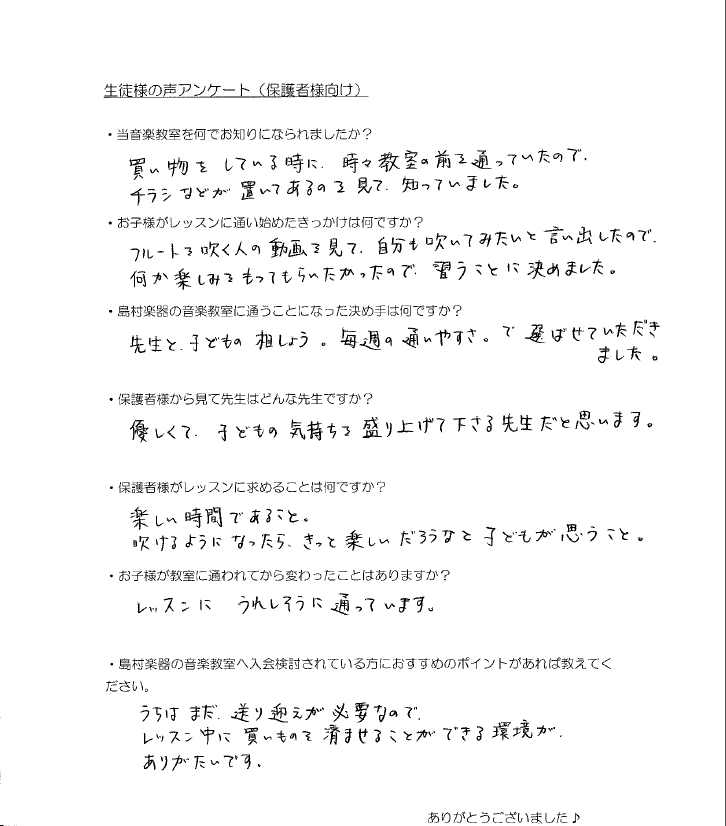 生徒様の声アンケート（保護者様向け）
・当音楽教室を何でお知りになられましたか？
買い物を している時に、時々教室の前を通っていたので、
チラシなどが置いてあるのを見て、知っていました。
・お子様がレッスンに通い始めたきっかけは何ですか？
フルートを吹く人の動画を見て、自分も吹いてみたいと言い出したので、
何か楽しみをもってもらいたかったので、習うことに決めました。
・島村楽器の音楽教室に通うことになった決め手は何ですか？
先生と、子どもの 相しょう。毎週の通いやすさ。で 選ばせていただき
ました。
・保護者様から見て先生はどんな先生ですか？
優しくて、子どもの気持ちを盛り上げて下さる先生だと思います。
・保護者様がレッスンに求めることは何ですか？
楽しい時間であること。
吹けるようになったら、きっと楽しいだろうなと子どもが思うこと。
・お子様が教室に通われてから変わったことはありますか？
レッスンに うれしそうに通っています。
・島村楽器の音楽教室へ入会検討されている方におすすめのポイントがあれば教えてく
ださい。
うちは まだ、送り迎えが必要なので、
レッスン中に 買いものを済ませることができる環境が、
ありがたいです。
ありがとうございました♪